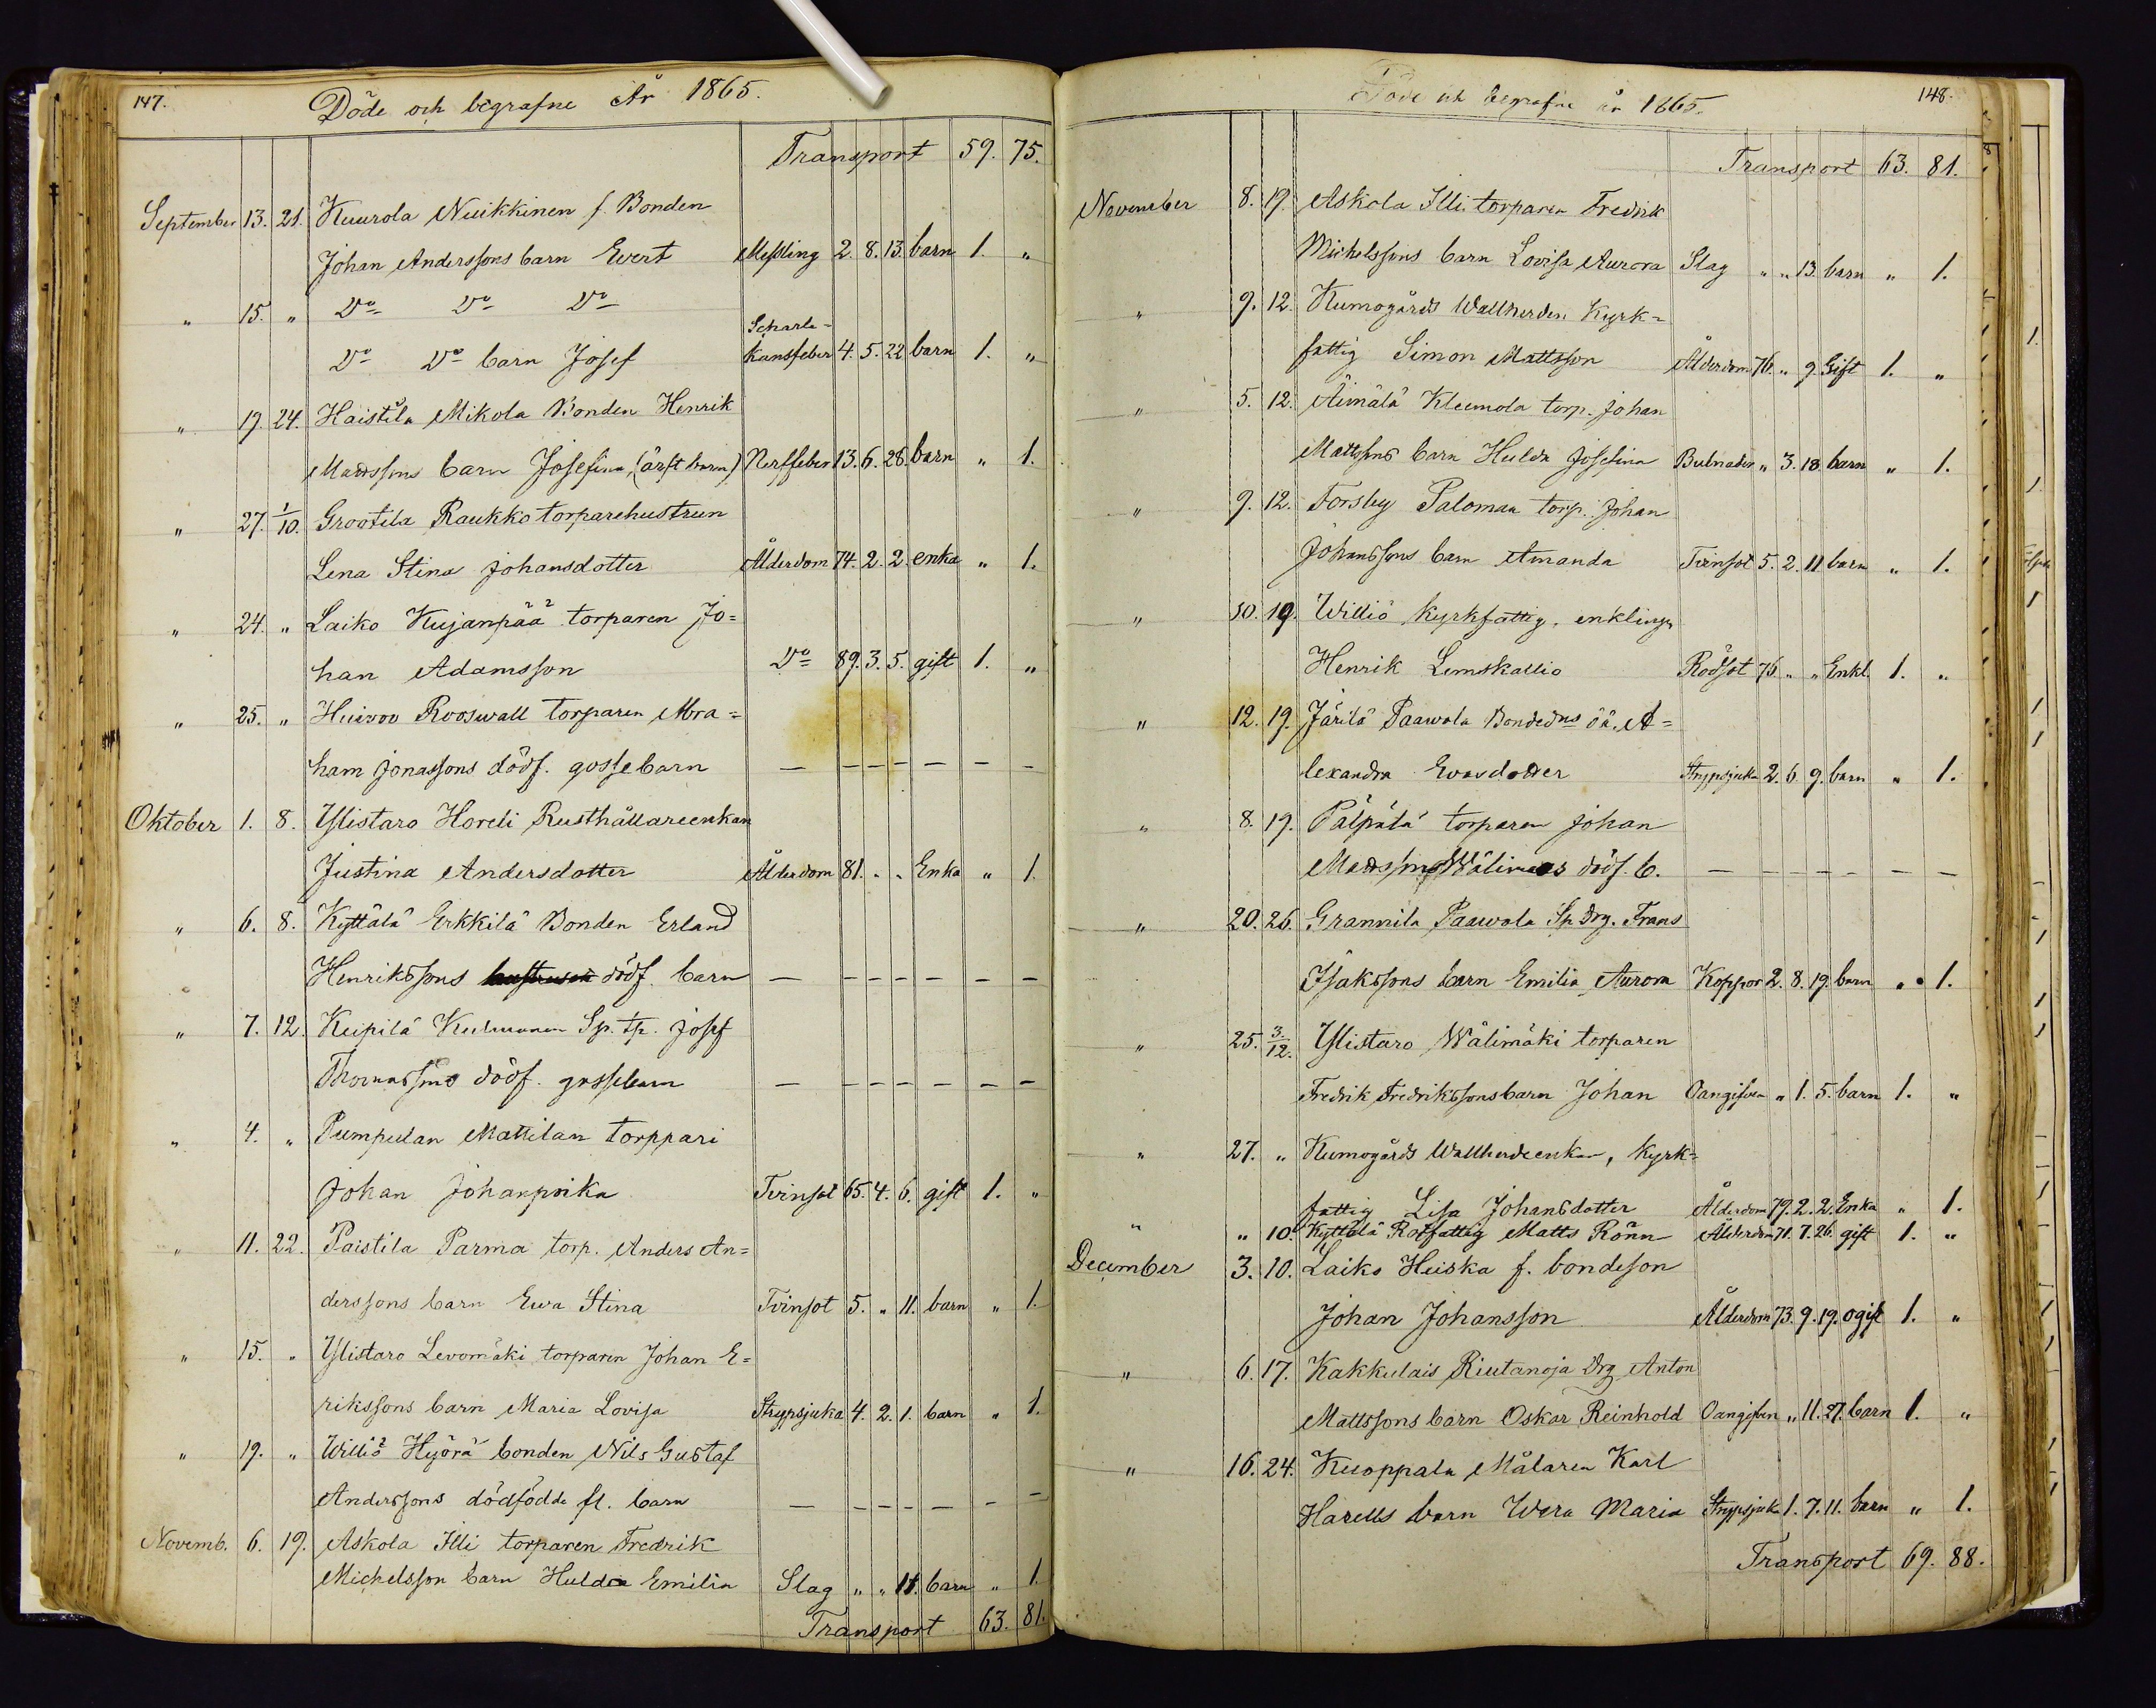 147.
Döde och begrafne År 1865.
Transport 59. 75.
September 13. 21. Kuurola Nuikkinen f. Bonden
Johan Anderssons barn Evert Messling 2. 8. 13. barn 1. "
" 15. " Do Do Do
Scharla-
Do Do barn Josef kansfeber 4. 5. 22 barn 1. "
" 19. 24. Haistila Mikola Bonden Henrik
Mattssons barn Josefina, (äkt barn) Nerffeber 13. 6. 28. barn " 1.
" 27. 1/10. Grootila Raukko torparehustrun
Lena Stina Johansdotter Ålderdom 74. 2. 2. enka " 1.
" 24. " Laiko Kujanpää torparen Jo=
han Adamsson Do 89. 3. 5. gift 1. "
" 25. " Huivoo Rooswall torparen Abra=
ham Jonassons dödf. gossebarn — — — — — — —
Oktober 1. 8. Ylistaro Horeli Rusthållareenkan
Justina Andersdotter Ålderdom 81. " " Enka " 1.
" 6. 8. Kyttälä Erkkilä Bonden Erland
Henrikssons dödf. barn — — — — — — —
" 7. 12. Keipilä Sp. tp. Josef
Thomassons dödf. gossebarn — — — — — — —
" 4. " Pumpulan Mattilan torppari
Johan Johanpoika Tvinsot 65. 4. 6. gift 1. "
" 11. 22. Paistila Parma torp. Anders An=
derssons barn Ewa Stina Tvinsot 5. " 11. barn " 1.
" 15. " Ylistaro Levomäki torparen Johan E=
rikssons barn Maria Lovisa Strypsjuka 4. 2. 1. barn " 1.
" 19. " Williö Hyörä bonden Nils Gustaf
Anderssons dödfödde fl. barn — — — — — — —
Novemb. 6. 19. Askola Illi torparen Fredrik
Michelsson barn Hulda Emilia Slag " " 11. barn " 1.
Transport 63. 81.
148.
Döde och begrafne år 1865.
Transport 63. 81.
November 8. 19. Askola Illi torparen Fredrik
Michelssons barn Lovisa Aurora Slag " " 13. barn " 1.
" 9. 12. Kumogårds Wallherden Kyrk=
fattig Simon Mattsson Ålderdom 76. " 9. Gift 1. "
" 5. 12. Äimälä Kleemola torp. Johan
Mattsons barn Hulda Josefina Bulnader " 3. 18. barn " 1.
" 9. 12. Forsby Paloman torp. Johan
Johanssons barn Amanda Tvinsot 5. 2. 11 barn " 1.
" 10. 19. Williö Kyrkfattig. enklingn
Henrik Lemskallio Rödsot 76. " " Enkl. 1. "
" 12. 19. Järilä Paawola Bondedns oä. A=
lexandra Evasdotter Strypsjuka 2. 6. 9. barn " 1.
" 8. 19. Pälpälä torparen Johan
Mattssons Wälimaas dödf. b. — — — — — — —
" 20. 26. Grannila Paawola Sp. drg. Frans
Isakssons barn Emilia Aurora Koppor 2. 8. 19. barn " 1.
" 25. 3/12. Ylistaro Wälimäki torparen
Fredrik Fredrikssons barn Johan Oangifven " 1. 5. barn 1. "
" 27. " Kumogårds Wallherdeenkan, Kyrk=
fattig Lisa Johansdotter Ålderdom 79. 2. 2. Enka " 1.
" " 10. Kyttälä Rotfattig Matts Rönn Ålderdom 71. 7. 26. gift 1. "
December 3. 10. Laiko Heiska f. bondeson
Johan Johansson Ålderdom 73. 9. 19. ogift 1. "
" 6. 17. Kakkulais Riutanoja Drg Anton
Mattssons barn Oskar Reinhold Oangifven " 11. 27. barn 1. "
" 16. 24. Kuoppala Målaren Karl
Harells barn Wera Maria Strypsjuka 1. 7. 11. barn " 1.
Transport 69. 88.